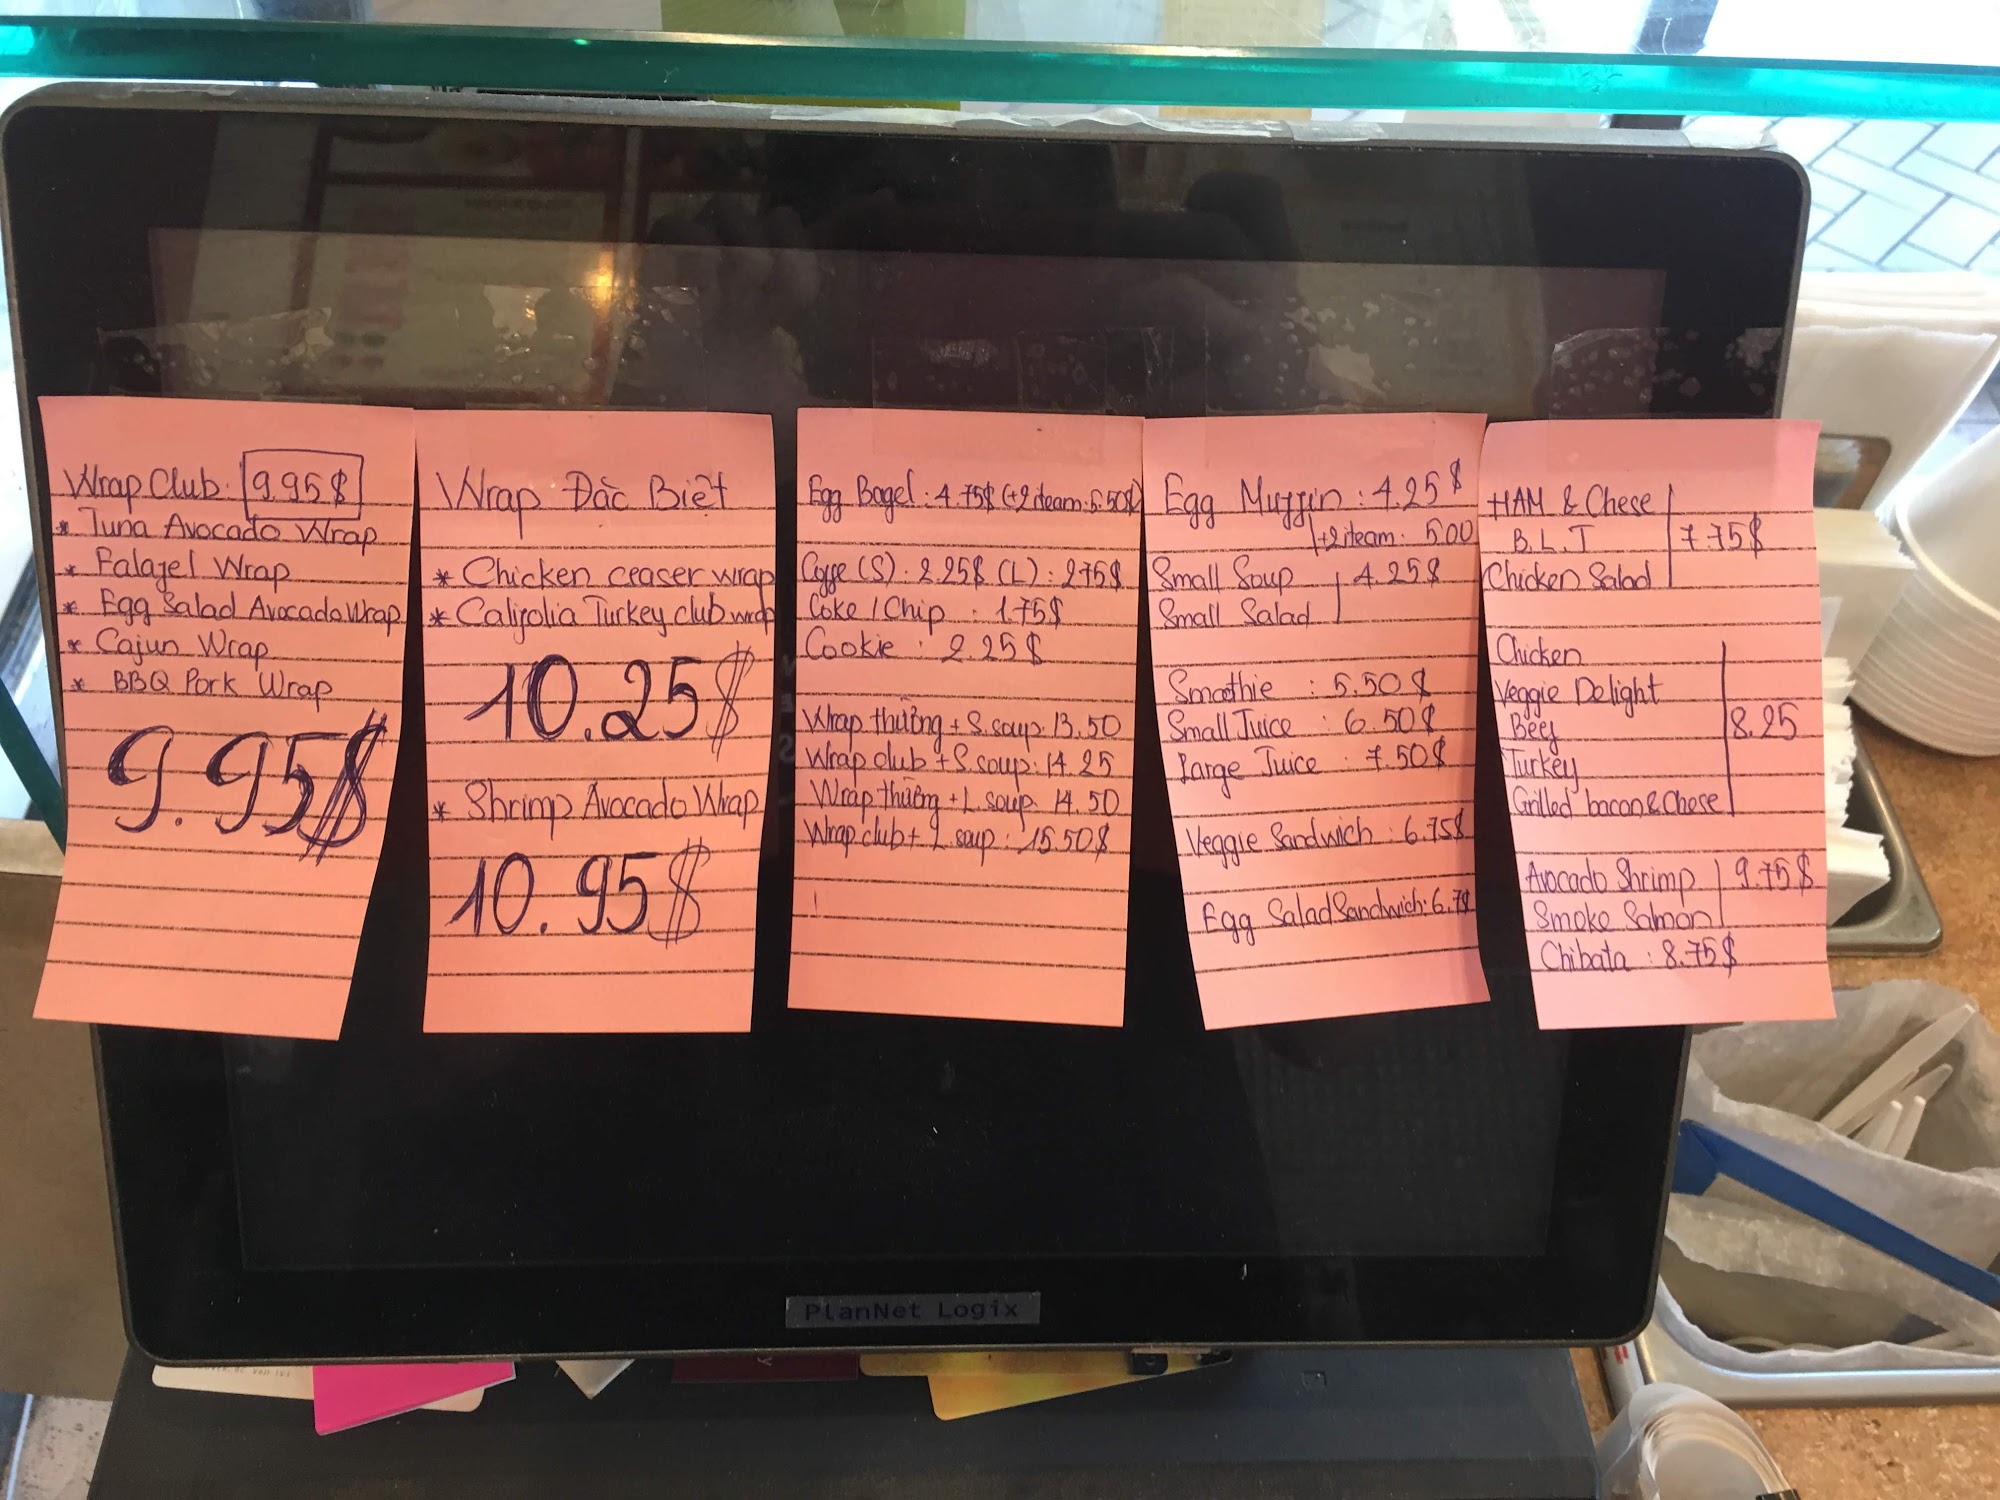 Wrap Club: 9.95$
* Tuna Avocado Wrap
* Falafel Wrap
* Egg Salad Avocado Wrap
* Cajun Wrap
* BBQ Pork Wrap
9.95$
Wrap Đặc Biệt
* Chicken ceaser wrap
* Califolia Turkey club wrap
10.25$
* Shrimp Avocado Wrap
10.95$
Egg Bagel: 4.75$ (+2 iteam: 5.50$)
Coffe (S): 2.25$ (L): 2.75$
Coke / Chip : 1.75$
Cookie : 2.25$
Wrap thường + S. soup: 13.50
Wrap club + S. soup: 14.25
Wrap thường + L. soup: 14.50
Wrap club + L. soup: 15.50$
Egg Muffin : 4.25$
+2 iteam: 5.00
Small Soup 4.25$
Small Salad
Smothie : 5.50$
Small Juice : 6.50$
Large Juice : 7.50$
Veggie Sandwich : 6.75$
Egg Salad Sandwich: 6.7$
HAM & Chese
B.L.T 7.75$
Chicken Salad
Chicken
Veggie Delight
Beef 8.25
Turkey
Grilled bacon & Chese
Avocado Shrimp 9.75$
Smoke Salmon
Chibata : 8.75$
PlanNet Logix